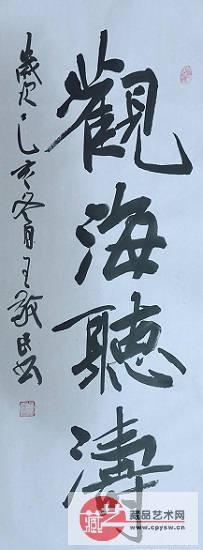 觀海聽濤
歲次己亥冬月王敬民書
藏艺
藏品艺术网
www.cpysw.cn